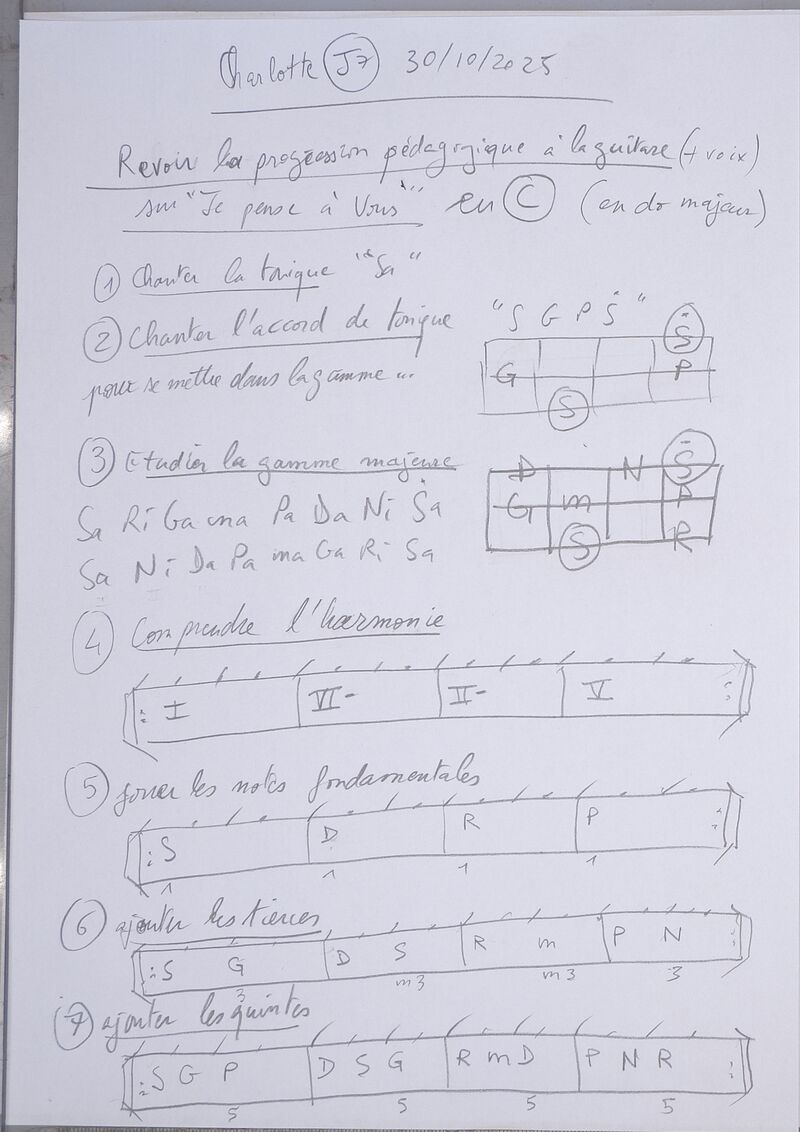 Charlotte J7 30/10/2025
Revoir la progression pédagogique à la guitare (+ voix)
sur "Je pense à Vous" en C (en do majeur)
① Chanter la tonique "Sa"
② Chanter l'accord de tonique "S G P Ṡ"
pour se mettre dans la gamme...
Ṡ
G P
S
③ Etudier la gamme majeure
D N Ṡ
G m P
S R
Sa Ri Ga ma Pa Da Ni Ṡa
Sa Ni Da Pa ma Ga Ri Sa
④ Comprendre l'harmonie
: I VI- II- V :
⑤ jouer les notes fondamentales
: S D R P :
1 1 1 1
⑥ ajouter les tierces
: S G D S R m P N :
3 m3 m3 3
⑦ ajouter les quintes
: S G P D S G R m D P N R :
5 5 5 5